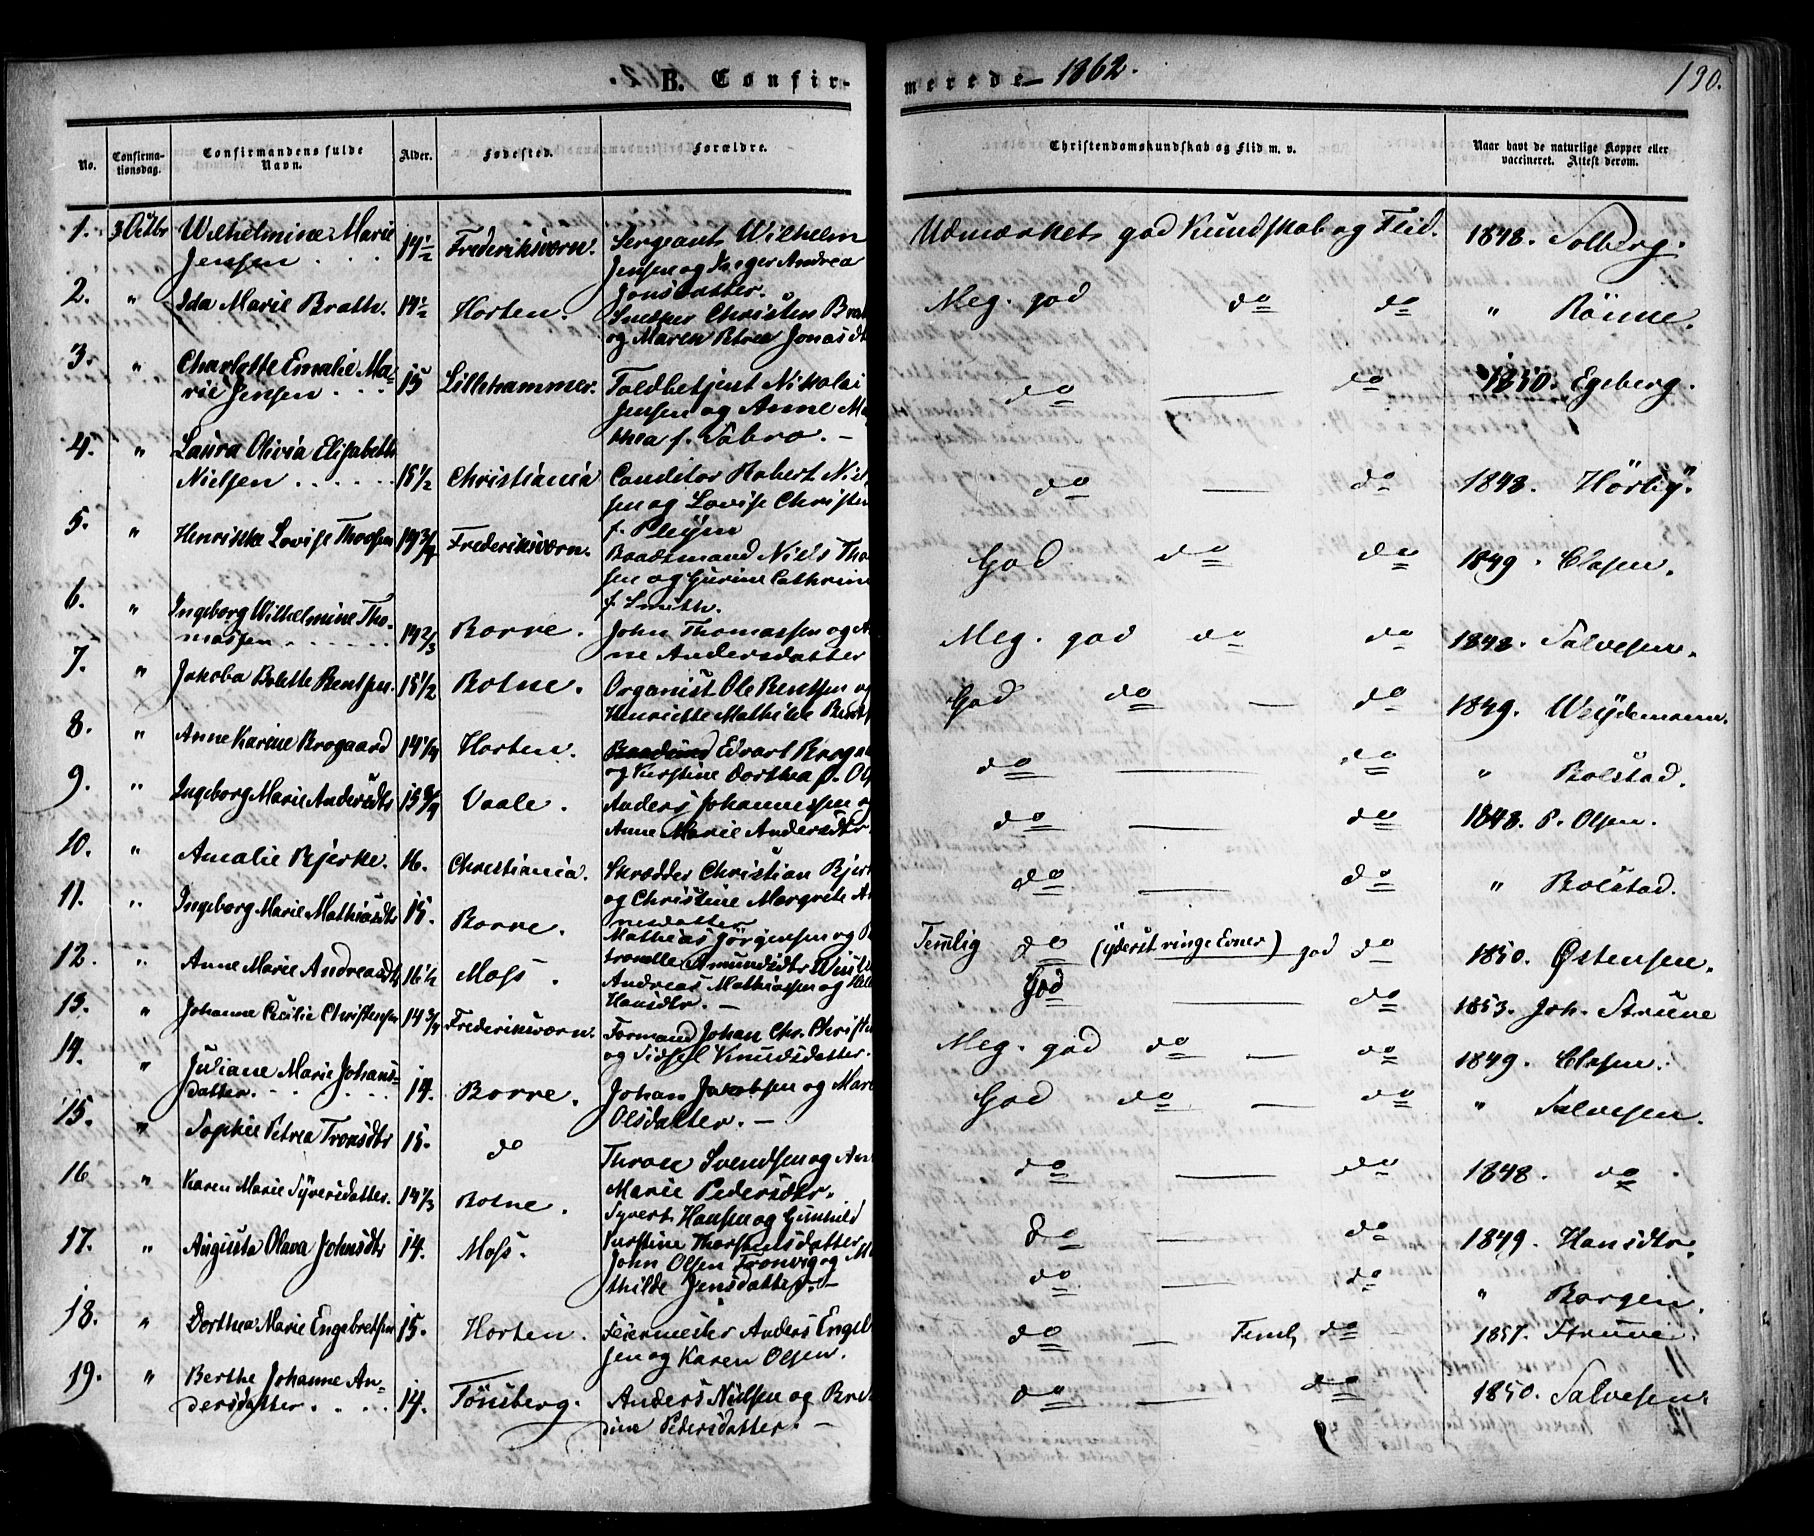 B. Confirmerede 1862.
190.
No. Confirmationsdag. Confirmandens fulde Navn. Alder. Fødested. Forældre. Christendomskundskab og Flid m. v. Naar havt de naturlige Kopper eller vaccineret. Attest derom.
1. 3 Octbr Wilhelmine Marie Jensen . . . 14 1/2 Frederiksværn. Sergeant Wilhelm Jensen og Andrea Jonsdatter. Udmærket god Kundskab og Flid. 1848. Solberg.
2. " Ida Marie Brath. 14 1/2 Horten. Christen og Maren Petrea Jonasdt Meg. god do do " Rönne.
3. " Charlotte Emalie Marie Jensen . . . 15 Lillehammer. Toldbetjent Nikolai Jensen og Anne Mathea f. Sabro. — do — do 1850. Egeberg.
4. " Laura Olivia Elisabeth Nielsen . . . . . 15 1/2 Christiania Conditor Robert Niel sen og Lovise Christen f. Pleÿm do — do 1848. Hörbÿ
5. " Henriette Lovise Thoesen 14 3/4 Frederiksværn. Baadsmand Niels Tho sen og Gurine Cathrine f. Smith. God do do 1849. Clasen.
6. " Ingeborg Wilhelmine Thomassen . . . . . 14 2/3 Borre. John Thomassen og A ne Andersdatter Meg. god do do 1848. Salvesen.
7. " Jakoba Bolette Bentsen. 15 1/2 Botne. Organist Ole Bentsen og Henriette Mathilde Bent God do — do 1849. Weÿdemann.
8. " Anne Karine Brogaard 14 1/4 Horten. Edvart og Kirstine Dorthea f. Ol do — do " Bolstad.
9. " Ingeborg Marie Andersdtr 15 3/4 Vaale. Anders Johannessen og Anne Marie Andersdtr. do — do 1848. P. Olsen.
10. " Amalie Bjerke. 16. Christiania. Skrædder Christian Bjer og Christine Margrete A nesdatter do — do " Bolstad.
11. " Ingeborg Marie Mathiasdtr 15. Borre. Mathias Jörgensen og P tronelle Amundsdtr Temlig do (ÿderst ringe Evner) god do 1850. Østensen.
12. " Anne Marie Andreasdtr 16 1/2 Moss. Andreas Mathiassen og Hansdtr. — God — do 1853. Joh. Strüne
13. " Johanne Cecilie Christensen 14 3/4 Frederiksværn. Formand Johan Chr. Christ og Sidsel Knudsdatter. Meg. god do — do 1849. Clasen.
14. " Juliane Marie Johansdatter. . . . 14. Borre. Johan Jakobsen og Mari Olsdatter. — God do — do " Salvesen.
15. " Sophie Petrea Tronsdtr 15. do Throen Svendsen og An Marie Pedersdtr. do — do 1848. do
16 " Karen Marie Syversdatter. 14 1/3 Botne. Syvert Hansen og Gunhild Kirstine Thorstensdatter do — do 1849. Hansdtr.
17. " Augusta Olava Johnsdtr 14. Moss. John Olsen Tronvig og M thilde Jensdatter. — do — do " Borgen.
18. " Dorthea Marie Engebretsen 15. Horten. Feiermester Anders Engeb sen og Karen Olsen. do — Teml. do 1857. Strüne.
19. " Berthe Johanne Andersdatter. . . . 14. Tönsberg. Anders Nielsen og Bre dine Pedersdatter. — do — do 1850. Salvesen.